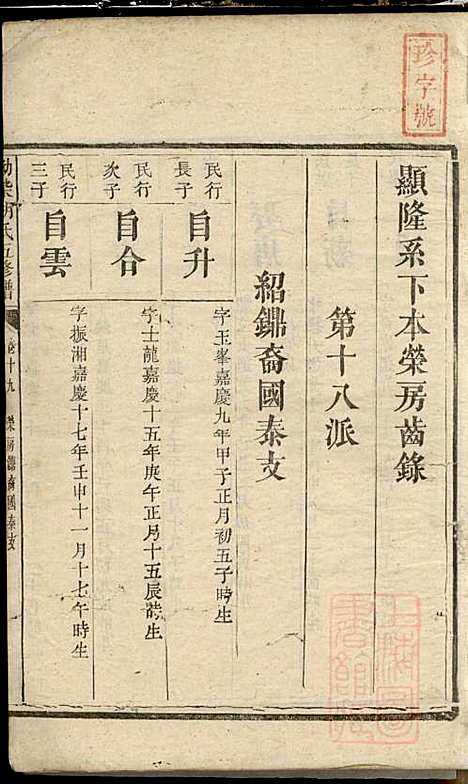 珍字號
顯隆系下本榮房齒錄
第十八派
紹鼎裔國泰支
民行
長子
自升
字玉峯嘉慶九年甲子正月初五子時生
民行
次子
自合
字士龍嘉慶十五年庚午正月十五辰時生
民行
三子
自雲
字振湘嘉慶十七年壬申十一月十七午時生
氏五修譜
卷十九
榮房鼎裔國泰支
上海圖書館藏